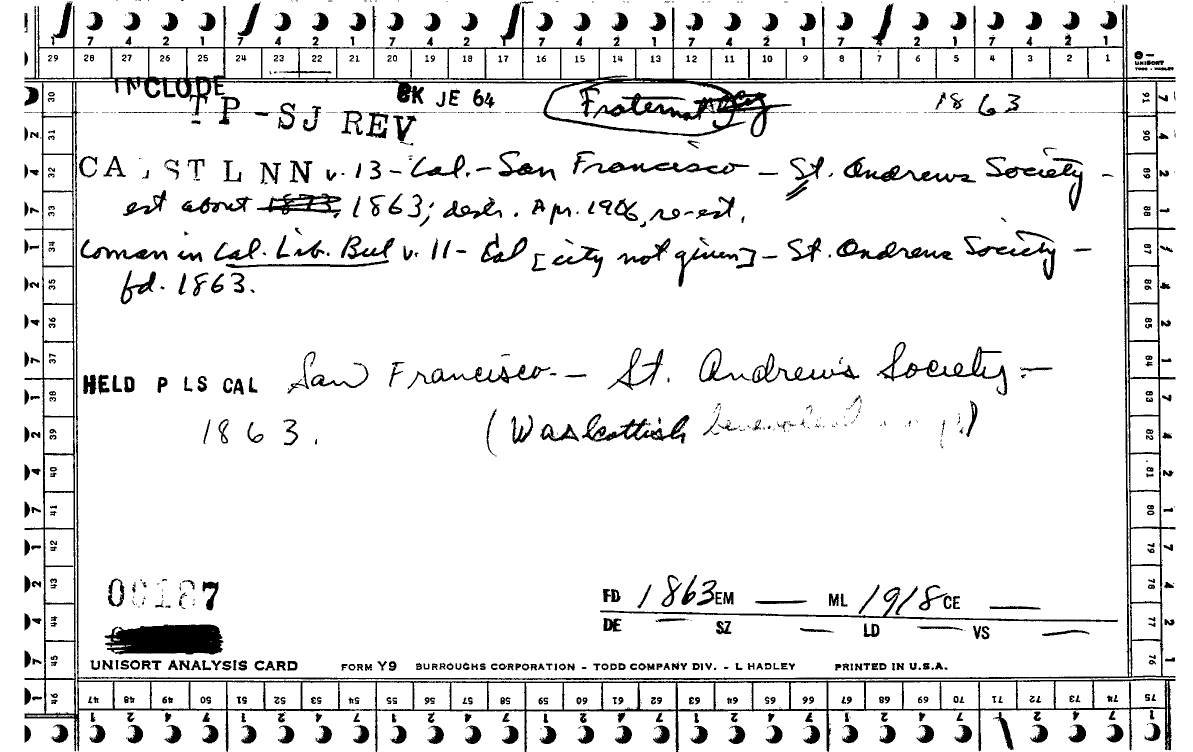 7 4 2 1 7 4 2 1 7 4 2 1 7 4 2 1 7 4 2 1 7 4 2 1 7 4 2 1
29 28 27 26 25 24 23 22 21 20 19 18 17 16 15 14 13 12 11 10 9 8 7 6 5 4 3 2 1
UNISORT
TODD - HADLEY
INCLUDE
TP-SJ REV
CK JE 64
Fraternal
1863
CA, ST L NN v. 13 - Cal. - San Francisco - St. Andrews Society -
est about 1873, 1863; destr. Apr. 1906, re-est.
Coman in Cal. Lib. Bul v. 11 - Cal [city not given] - St. Andrews Society -
fd. 1863.
HELD P LS CAL San Francisco - St. Andrew's Society -
1863. (Was Scottish benevolent
00187
FD 1863 EM — ML 1918 CE —
DE — SZ — LD — VS —
UNISORT ANALYSIS CARD FORM Y9 BURROUGHS CORPORATION - TODD COMPANY DIV. - L HADLEY PRINTED IN U.S.A.
30 31 32 33 34 35 36 37 38 39 40 41 42 43 44 45 46
91 90 89 88 87 86 85 84 83 82 81 80 79 78 77 76 75
47 48 49 50 51 52 53 54 55 56 57 58 59 60 61 62 63 64 65 66 67 68 69 70 71 72 73 74